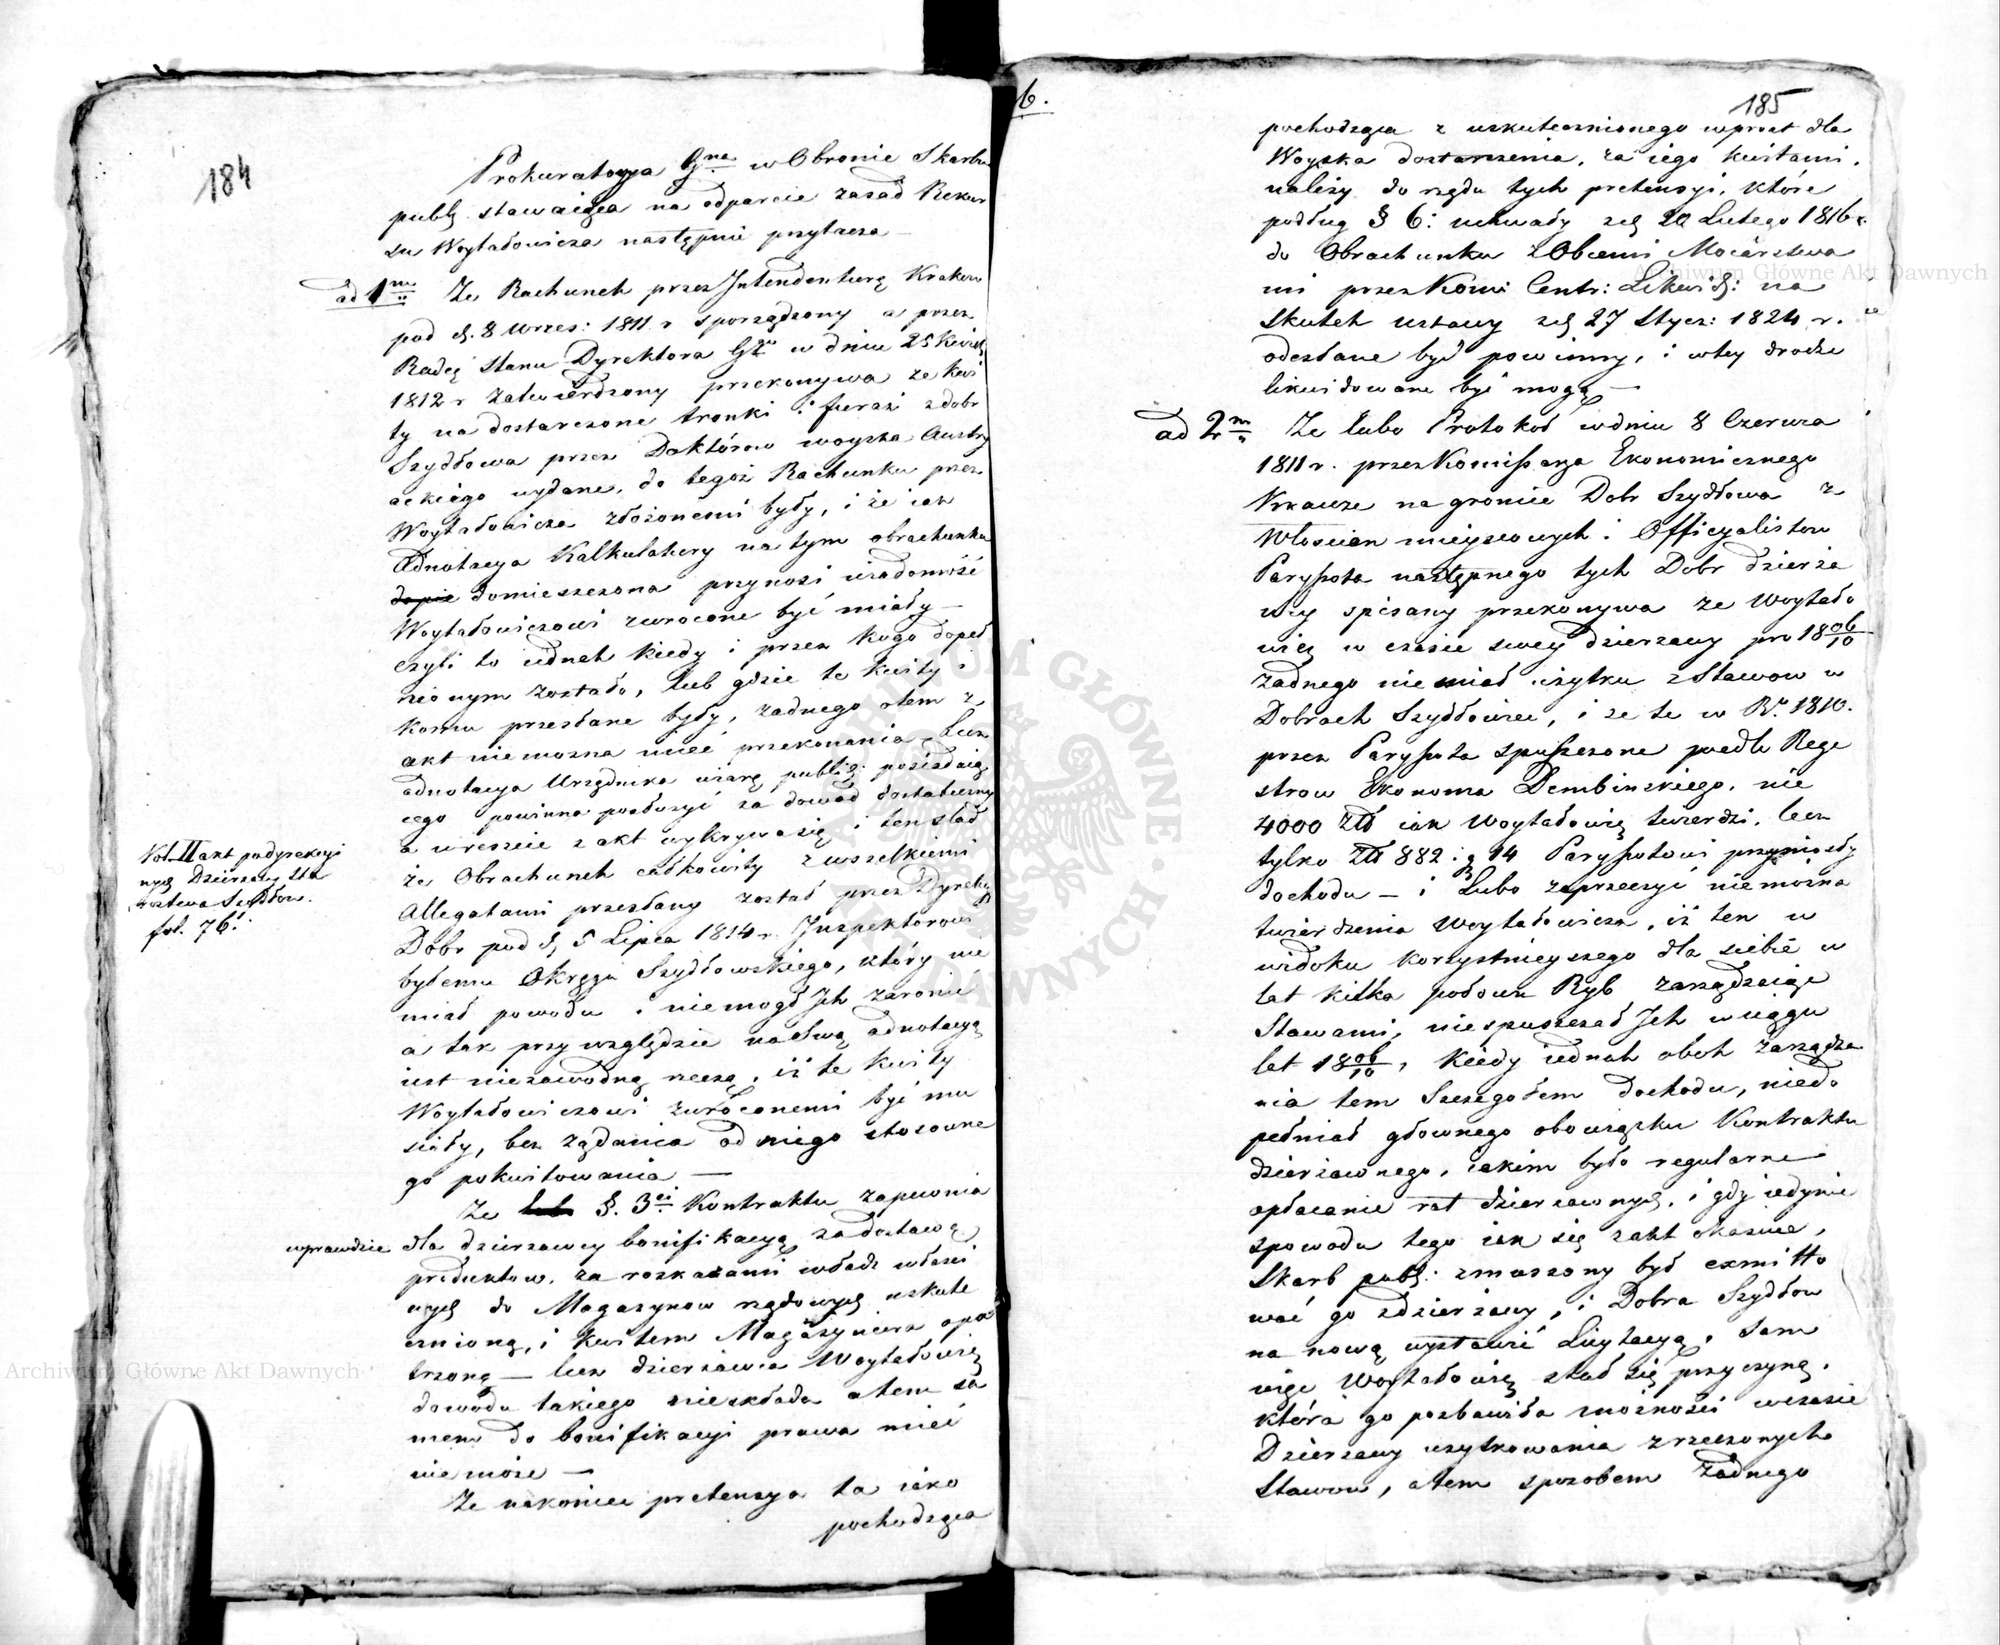 184
Prokuratorya Gna w Obronie Skarbu
publ. stawaiąca na odparcie zasad Rekur
su Woytasowicza następnie przytacza —
ad 1m Że Rachunek przez Intendenturę Krakow
pod d. 8 Wrześ: 1811 r sporządzony a przez
Radcę Stanu Dyrektora Glgo w dniu 25 Kwiet
1812 r zatwierdzony przekonywa że kwi
ty na dostarczone trunki i furaż z dobr
Szydłowa przez Doktórow woyska Austry
ackiego wydane, do tegoż Rachunku przez
Woytasowicza złożonemi były, i że iak
Adnotacya Kalkulatury na tym obrachunku
domieszczona przynosi wiadomość
Woytasowiczowi zwrocone być miały —
czyli to iednak kiedy i przez kogo dopeł
nionym zostało, lub gdzie te kwity i
komu przesłane były, żadnego otem z
akt niemożna mieć przekonania — Lecz
adnotacya Urzędnika wiarę publicz: posiadaią
cego powinna posłużyć za dowód dostateczny
a wreszcie z akt wykrywa się i ten ślad
że Obrachunek całkowity z wszelkiemi
Allegatami przesłany został przez Dyrekcyą
Dobr pod d. 5 Lipca 1814 r. Inspektorowi
byłemu Okręgu Szydłowskiego, który nie
miał powodu i niemogł Ich zaronić
a tak przy względzie na Swą adnotacyą
iest niezawodną rzeczą, iż te kwity
Woytasowiczowi zwróconemi być mu
siały, bez żądania od niego stosowne
go pokwitowania —
Vol. II akt
nych Dzierżawy Sta
rostwa Szydłow.
fol. 76.
Że §. 3ci Kontraktu zapewnia
wprawdzie dla dzierżawcy bonifikacyą za dostawę
produktow, za rozkazami władz właści
wych do Magazynow rządowych uskute
cznioną, i kwitem Magazyniera opa
trzoną — lecz dzierżawca Woytasowicz
dowodu takiego nieskłada atem sa
mem do bonifikacyi prawa mieć
niemoże —
Że nakoniec pretensya ta iako
pochodząca
6.
185
pochodząca z uskutecznionego wprost dla
Woyska dostarczenia, za iego kwitami,
należy do rzędu tych pretensyi, które
podług § 6: uchwały z d. 20 Lutego 1816 r.
do Obrachunku z Obcemi Mocarstwa
mi przez Komi: Centr: Likwid: na
skutek ustawy z d. 27 Stycz: 1824 r.
odesłane być powinny, i wtey drodze
likwidowane być mogą —
ad 2m Że lubo Protokoł w dniu 8 Czerwca
1811 r. przez Komissarza Ekonomicznego
Krauze na groncie Dobr Szydłowa z
Włościan mieyscowych i Officyalistow
Paryssota następnego tych Dobr dzierża
wcy spisany przekonywa że Woytaso
wicz w czasie swey Dzierżawy pro 18 06/10
żadnego niemiał użytku z Stawow w
Dobrach Szydłowiec, i że te w R. 1810.
przez Paryssota spuszczone podle Reje
strow Ekonoma Dembinskiego, nie
4000 Złł iak Woytasowicz twierdzi, lecz
tylko Złł 882 : g 14 Paryssotowi przyniosły
dochodu — i Lubo zaprzeczyć niemożna
twierdzenia Woytasowicza, iż ten w
widoku korzystnieyszego dla siebie w
lat kilka połowu Ryb zarządzaiąc
Stawami, niespuszczał Ich w ciągu
lat 18 06/10, kiedy iednak obok zarządze
nia tem Szczegołem Dochodu, niedo
pełniał głownego obowiązku Kontraktu
dzierżawnego, iakim było regularne
opłacanie rat dzierżawnych, i gdy iedynie
spowodu tego iak się z akt okazuie,
Skarb publ: zmuszony był exmitto
wać go z dzierżawy, i Dobra Szydłow
na nową wystawić Licytacyą, sam
więc Woytasowicz stał się przyczyną,
która go pozbawiła możności wczasie
Dzierżawy użytkowania z rzeczonych
Stawow, atem sposobem żadnego
Archiwum Główne Akt Dawnych
Archiwum Główne Akt Dawnych
ARCHIWUM GŁÓWNE AKT DAWNYCH